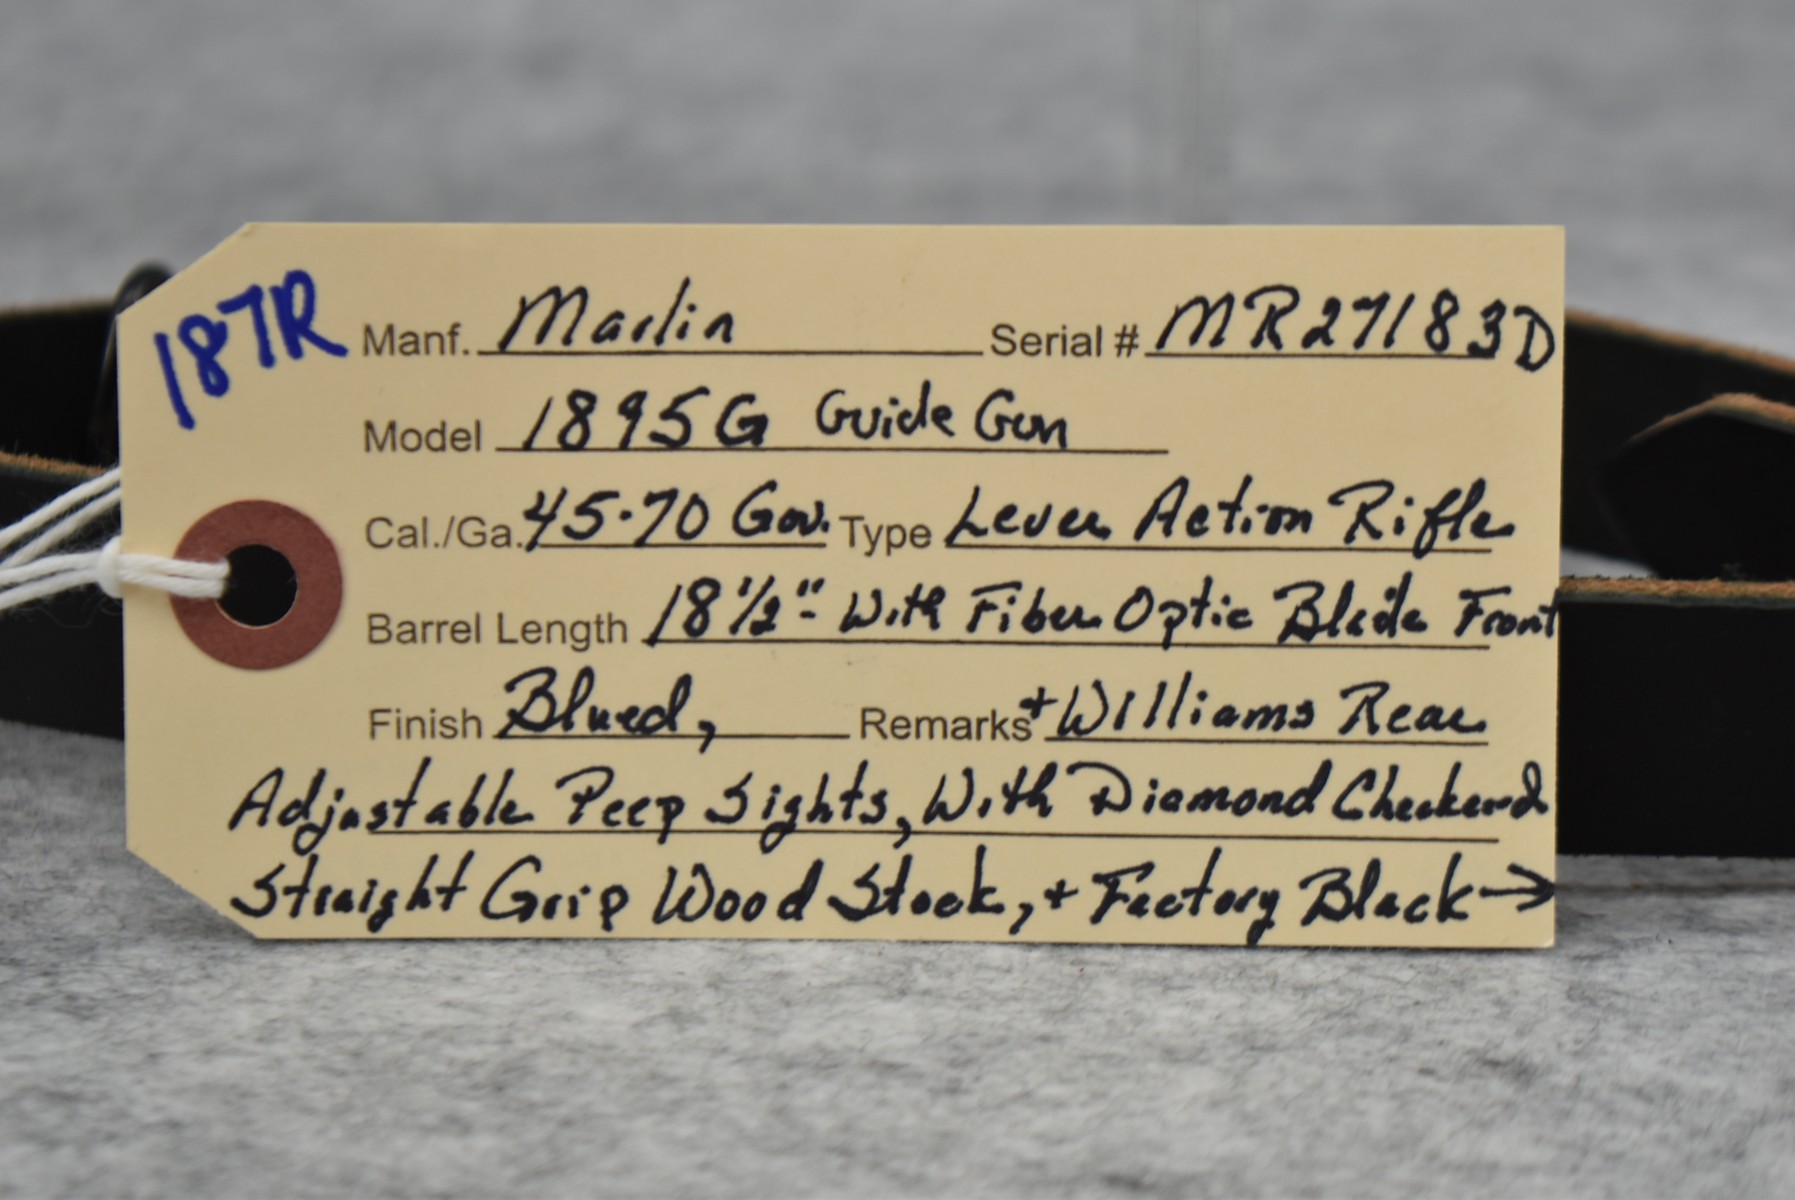 187R
Manf. Marlin Serial # MR27183D
Model 1895G Guide Gun
Cal./Ga. 45-70 Gov. Type Lever Action Rifle
Barrel Length 18 1/2" - With Fiber Optic Blade Front
Finish Blued, Remarks + Williams Rear
Adjustable Peep Sights, With Diamond Checkered
Straight Grip Wood Stock, + Factory Black →